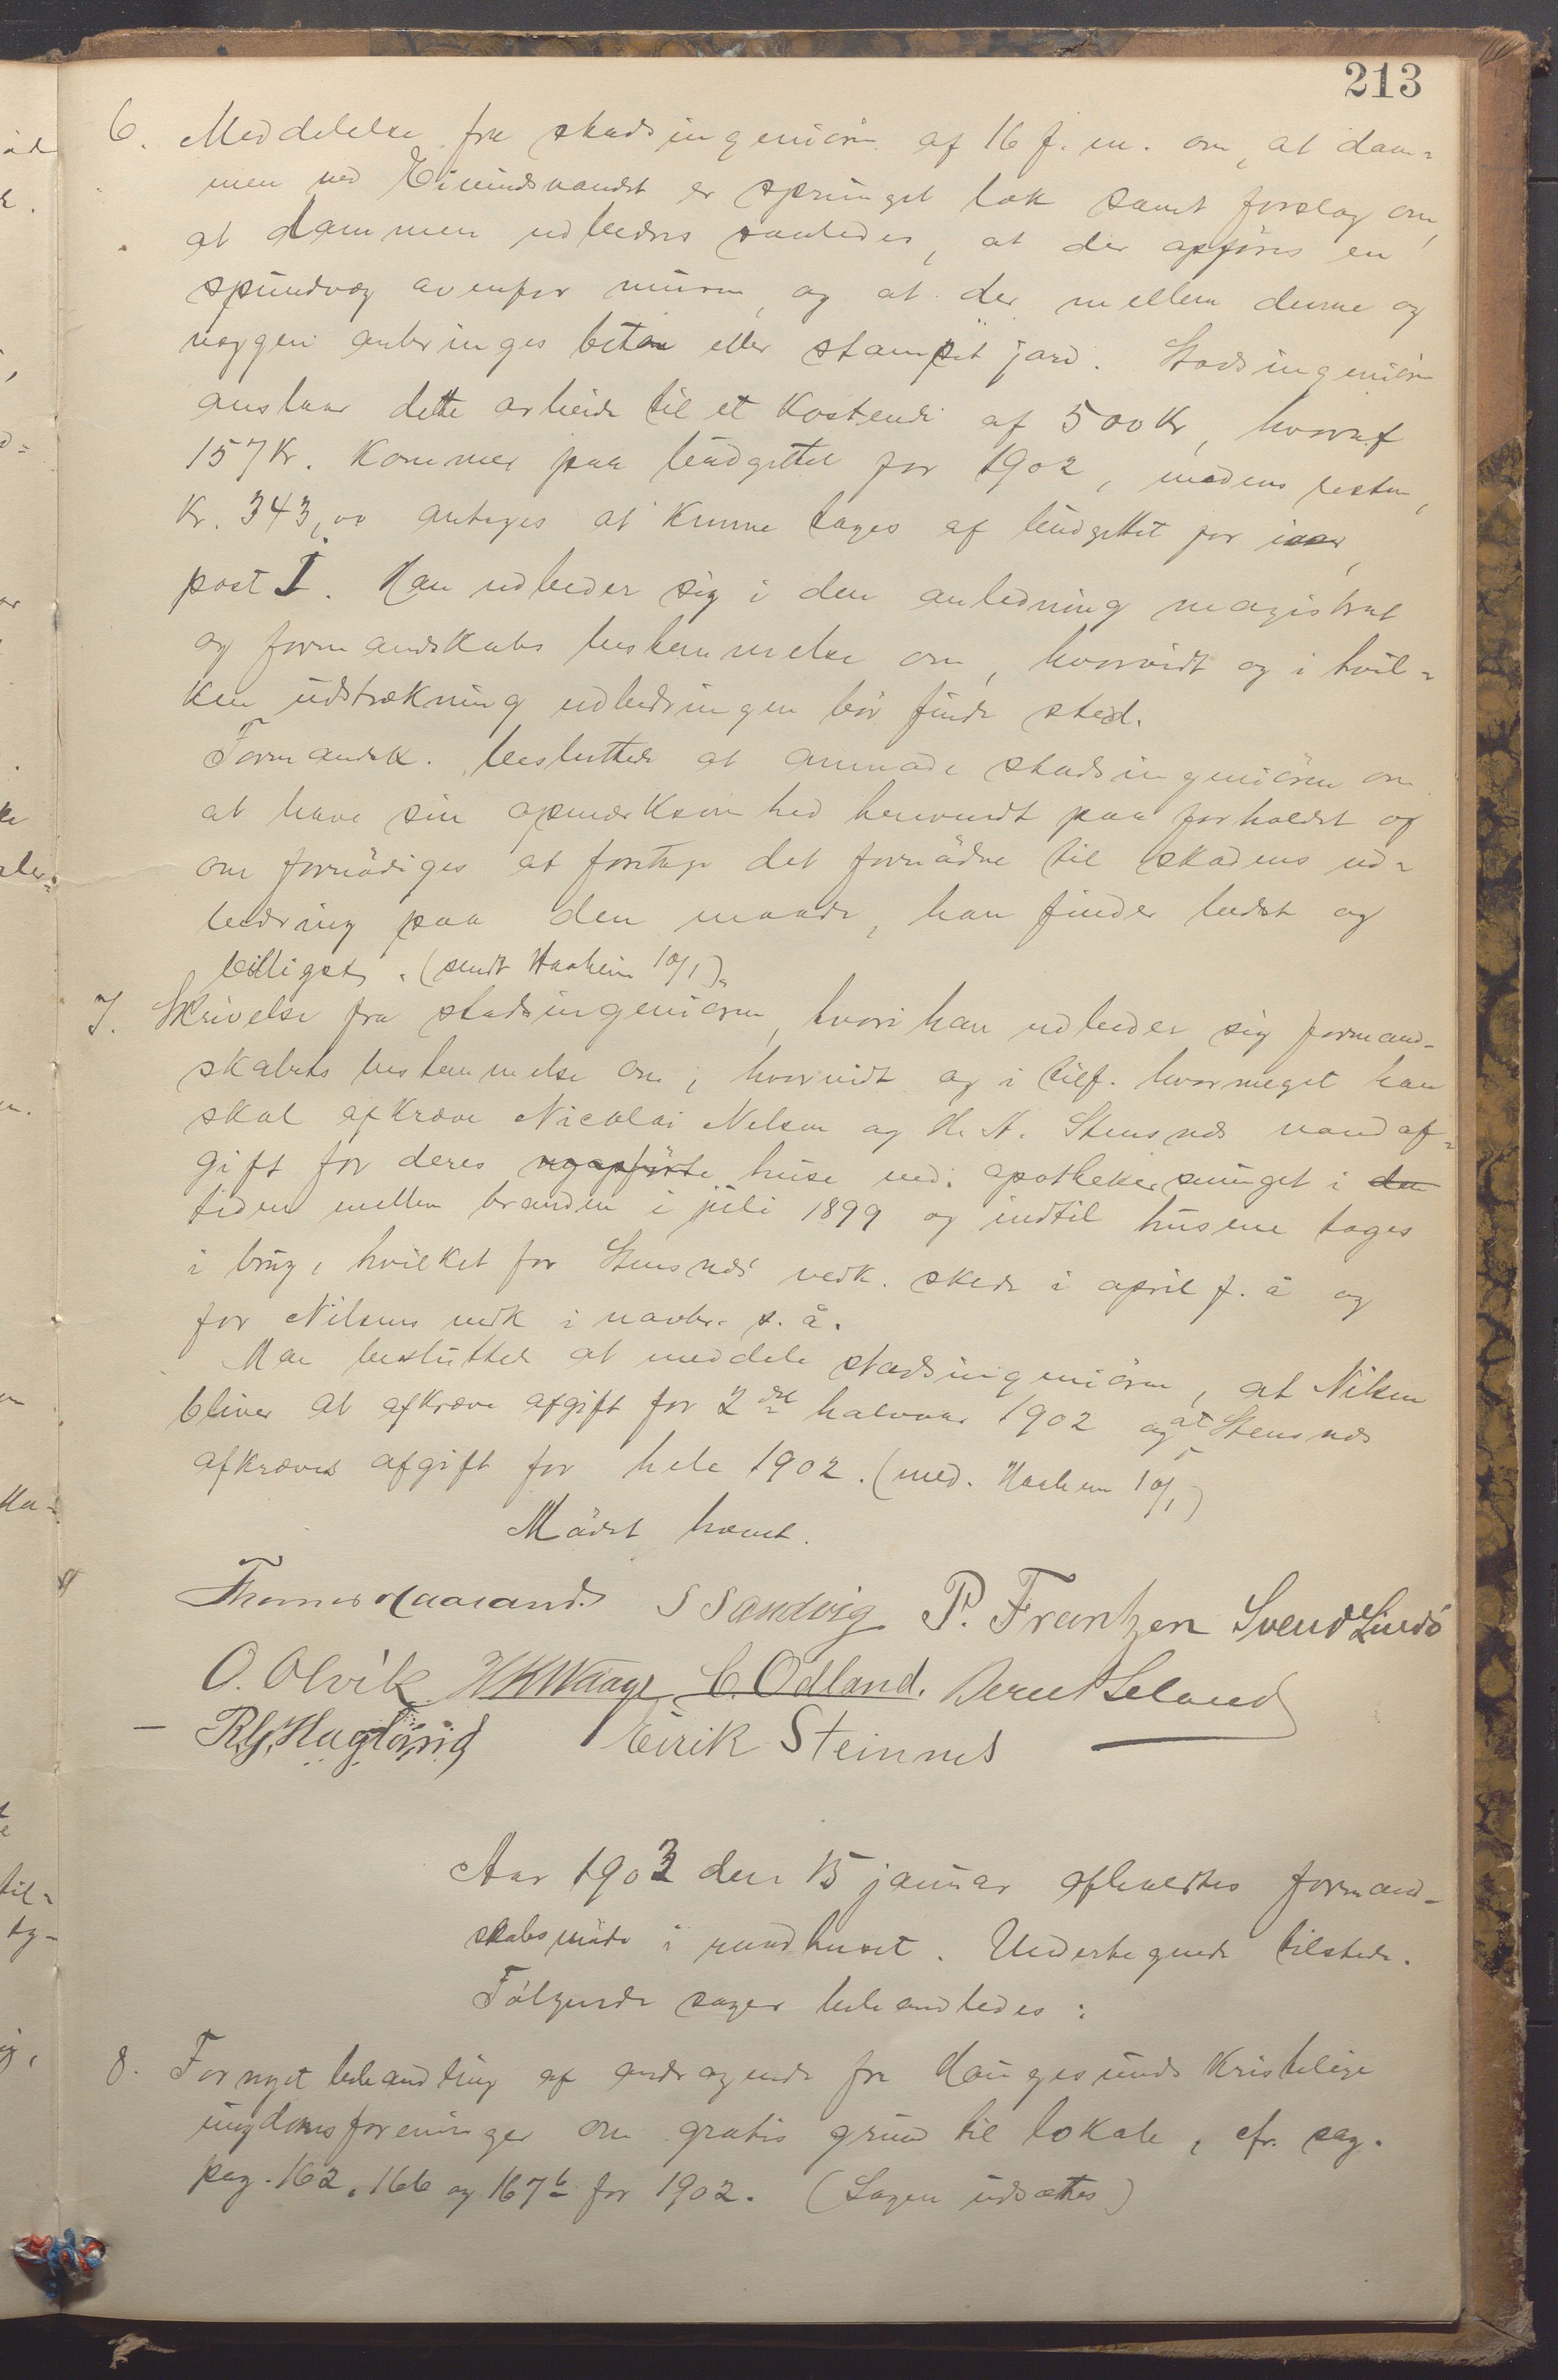 213
6. Meddelelse fra stadsingeniören af 16 f. m. om, at dam-
men ved Eivindsvandet er sprunget læk samt forslag om,
at dammen udbedres saaledes, at der opføres en
spundvæg ovenfor muren, og at der mellem denne og
væggen anbringes beton eller stampet jord. Stadsingeniören
anslaar dette arbeide til et kostende af 500 kr, hvoraf
157 kr. kommer paa budgettet for 1902, medens resten,
kr. 343,00 antages at kunne tages af budgettet for iaar,
post I. Han udbeder sig i den anledning magistrat
og formandskabs bestemmelse om, hvorvidt og i hvil-
ken udstrækning udbedringen bör finde sted.
Formandsk. besluttede at anmode stadsingeniören om
at have sin opmærksomhed henvendt paa forholdet og
om fornödiges at foretage det fornödne til skadens ud-
bedring paa den maade, han finder bedst og
billigst. (sendt Haaheim 10/1).
7. Skrivelse fra stadsingeniören, hvori han udbeder sig formand-
skabets bestemmelse om, hvorvidt og i tilf. hvormeget han
skal afkræve Nicolai Nilsen og H. A. Stensnæs vandaf-
gift for deres nyopførte huse ved apothekersmuget i den
tiden mellem branden i juli 1899 og indtil husene toges
i brug, hvilket for Stensnæs' vedk. skede i april f. å og
for Nilsens vedk i novbr. s. å.
Man besluttede at meddele stadsingeniören, at Nilsen
bliver at afkræve afgift for 2det halvaar 1902 og at Stensnæs
afkræves afgift for hele 1902. (med. Haaheim 10/1)
Mödet hævet.
Thomas Haaland. S Sandvig P. Frantzen Svend Lindö
O. Olvik H K Waage C. Odland. Berent Leland
R.G. Hagland Eirik Steinnes
Aar 1903 den 15 januar afholdtes formand-
skabsmöde i raadhuset. Undertegnede tilstede.
Følgende sager behandledes:
8. Fornyet behandling af andragende fra Haugesunds kristelige
ungdomsforeninger om gratis grund til lokale, cfr. sag.
pag. 162, 166 og 167 b for 1902. (Sagen udsættes)